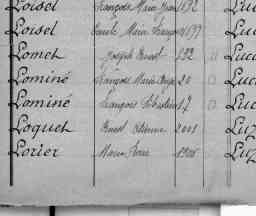 Loisel François Marie Jean 1192
Loisel Emile Marie François 1177
Lomet Joseph Benoit 132 Luc
Lominé François Marie Ange 20 Luc
Lominé François Sébastien 17 Luc
Loquet Benoit Etienne 2001 Luz
Lorier Marie Pierre 1908 Luz